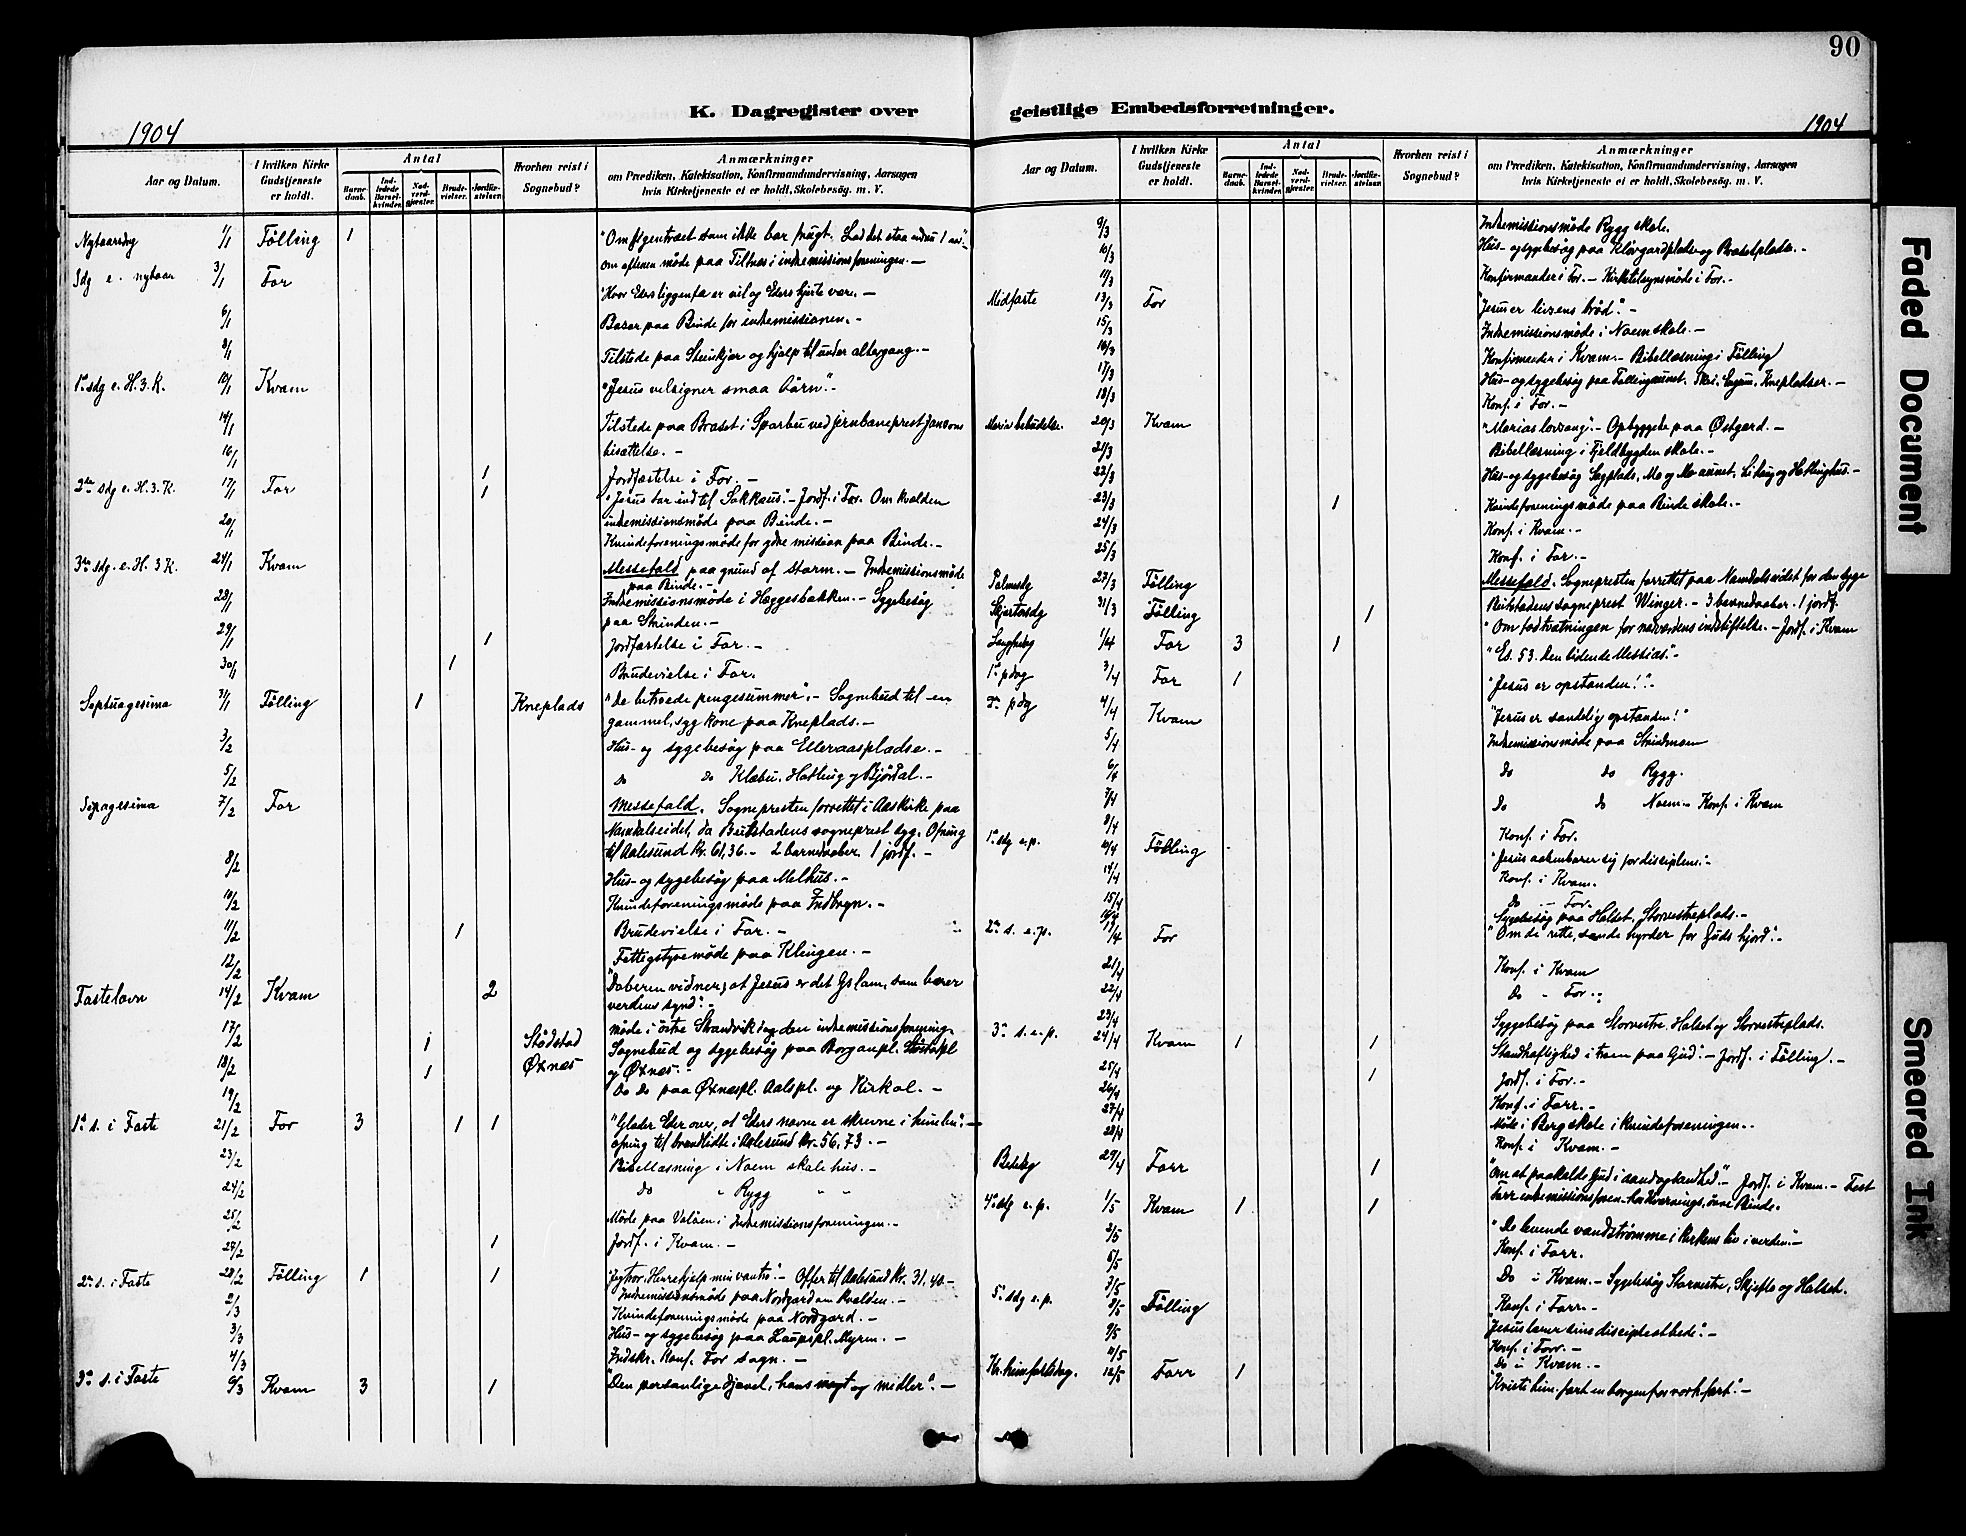 90
K. Dagregister over geistlige Embedsforretninger.
1904
1904
Aar og Datum.
I hvilken Kirke Gudstjeneste er holdt.
Antal
Barnedaab.
Indledede Barselkvinder.
Nadverdgjester.
Brudevielser.
Jordfæstelser.
Hvorhen reist i Sognebud?
Anmærkninger
om Prædiken, Katekisation, Konfirmandundervisning, Aarsagen
hvis Kirketjeneste ei er holdt, Skolebesøg. m. V.
Nytaarsdag 1/1 Følling 1 "Om figentræet som ikke bar frugt. Lad det staa endnu 1 aar".
Om aftenen møde paa Tiltnes i indremissionsforeningen.-
Sdg e. nytaar 3/1 For "Hvor Eders liggendefæ er vil og Eders hjerte være.-
6/1 Basar paa Binde for indremissionen.-
8/1 Tilstede paa Steinkjær og hjalp til under altergang.-
1ste sdg e. H.3.K. 10/1 Kvam "Jesus velsigner smaa børn".-
14/1 Tilstede paa Braset i Sparbu ved jernbaneprest Jansons
16/1 bisættelse.-
1 Jordfæstelse i For.-
2den sdg e. H.3.K. 17/1 For 1 "Jesus tar ind til Sakkæus".- Jordf. i For. Om kvelden
20/1 indremissionsmøde paa Binde.-
Kvindeforeningsmøde for ydre mission paa Binde.-
3die sdg. e. H. 3 K. 24/1 Kvam Messefald paa grund af storm.- Indremissionsmøde
paa Binde.-
28/1 Indremissionsmøde i Hæggesbakken.- Sygebesøg
paa Strinden.-
29/1 1 Jordfæstelse i For.-
30/1 1 Brudevielse i For.
Septuagesima 31/1 Følling 1 Kneplads "De betroede pengesummer".- Sognebud til en
gammel, syg kone paa Kneplads.-
3/2 Hus- og sygebesøg paa Elleraaspladse.-
5/2 Do Do Klæbu, Hatling og Bjørdal.-
Sexagesima 7/2 For Messefald. Sognepresten forrettet i Aaskirke paa
Namdalseidet, da Beitstadens sogneprest syg. Ofring
til Aalesund Kr. 61,36.- 2 barnedaaber. 1 jordf.-
8/2 Hus- og sygebesøg paa Melhus.-
10/2 Kvindeforeningsmøde paa Indbryn.-
11/2 1 Brudevielse i For.-
12/2 Fattigstyremøde paa Klingen.-
Fastelavn 14/2 Kvam 2 "Døberen vidner, at Jesus er det Gs lam, som bærer
verdens synd".-
17/2 1 Stødstad møde i østre Strandvik dag den indremissionsforening.
18/2 1 Øxnæs Sognebud og sygebesøg paa Borganpl.
og Øxnæs.-
19/2 Do Do paa Øxnæspl. Aalspl. og Kirkol.-
1ste s. i Faste 21/2 For 3 1 1 "Glæder Eder over, at Eders navne er skrevne i himlen".-
ofring til brandlidte i Aalesund kr. 56,73.-
23/2 Bibellæsning i Noem skolehus.-
24/2 do " Rygg " "
25/2 Møde paa Valøen i Indremissionsforeningen.-
27/2 1 Jordf. i Kvam.-
2den s. i Faste 28/2 Følling 1 1 Jeg tror, Herre hjelp min vantro".- Offer til Aalesund Kr. 31,40.-
2/3 Indremissionsmøde paa Nordgard om kvelden.-
Kvindeforeningsmøde paa Nordgard.-
3/3 Hus- og sygebesøg paa Laupspl. Myrm.-
4/3 Indskr. Konf. For sogn.-
3die s. i Faste 6/3 Kvam 3 1 "Den personlige djævel, hans magt og midler".-
Aar og Datum.
I hvilken Kirke Gudstjeneste er holdt.
Antal
Barnedaab.
Indledede Barselkvinder.
Nadverdgjester.
Brudevielser.
Jordfæstelser.
Hvorhen reist i Sognebud?
Anmærkninger
om Prædiken, Katekisation, Konfirmandundervisning, Aarsagen
hvis Kirketjeneste ei er holdt, Skolebesøg. m. V.
9/3 Indremissionsmøde Rygg skole.
10/3 Hus- og sygebesøg paa Klevgardpladse og Brasetpladse.-
11/3 Konfirmander i For.- Kirketilsynsmøde i For.-
Midfaste 13/3 For "Jesus er livsens brød".-
15/3 Indremissionsmøde i Noem skole.-
16/3 Konfirmander i Kvam.- Bibellæsning i Følling
17/3 Hus- og sygebesøg paa Føllingaunet. Knepladser.-
18/3 Konf. i For.-
Mariæ bebudelse. 20/3 Kvam "Marias lovsang".- Opbyggelse paa Østgard.-
21/3 Bibellæsning i Fjeldbygden skole.-
22/3 Hus- og sygebesøg Sagplads, Mo og Mo aunet,
23/3 1 Kvindeforeningsmøde paa Binde skole.-
24/3 Konf. i Kvam.-
25/3 Konf. i For.-
Palmesdg 27/3 Følling Messefald. Sognepresten forrettet paa Namdalseidet for den syge
Skjærtorsdg 31/3 Følling 1 Beitstadens sogneprest Winger.- 3 barnedaaber. 1 jordf.
"Om fodtvætningen før nadverdens indstiftelse.- Jordf. i Kvam
Langfredg 1/4 For 3 1 "Es. 53. Den lidende Messias".-
1ste pdag 3/4 For 1 "Jesus er opstanden!".-
2den pdg 4/4 Kvam "Jesus er sandelig opstanden!"
5/4 Indremissionsmøde paa Strindmoen
6/4 Do do Rygg.
7/4 Do do Noem.- Konf. i Kvam
8/4 Konf. i For.
1ste sdg e. p. 10/4 Følling "Jesus aabenbarer sig for disciplene".-
14/4 Konf. i Kvam.
15/4 Do - For.-
16/4 Sygebesøg paa Halset, Storvestreplads.-
2den s. e. p. 17/4 For "Om de rette, sande hyrder for Guds hjord".-
21/4 Konf. i Kvam
22/4 Do - For.-
23/4 Sygebesøg paa Storvestre, Halset og Storvestreplads.
3die s. e. p. 24/4 Kvam 1 1 Standhaftighed i troen paa Gud".- Jordf. i Følling.-
25/4 1 Jordf. i For.-
26/4 Konf. i Forr.-
27/4 Møde i Berg skole i kvindeforeningen.-
28/4 Konf. i Kvam.-
Bededg 29/4 Forr 1 "Om at paakalde Gud i aand og sandhed".- Jordf. i Kvam.- Fest
Forr indremissionsforen. hos Kværnings, øvre Binde.
4de sdg e. p. 1/5 Kvam 1 1 "De levende vandstrømme i kirkens liv i verden".-
3/5 Konf. i Forr.
6/5 Do i Kvam.- Sygebesøg Storvestre, Skjefte og Halset.
7/5 Konf. i Forr.-
5te sdg e. p. 8/5 Følling Jesus lærer sine disciple at bede".-
9/5 Konf. i Forr.-
11/5 Do i Kvam.-
Kr. himmelfartsdag. 12/5 Forr 1 "Kristi himmelfart en borgen for vor himmelfart".-
Faded Document
Smeared Ink